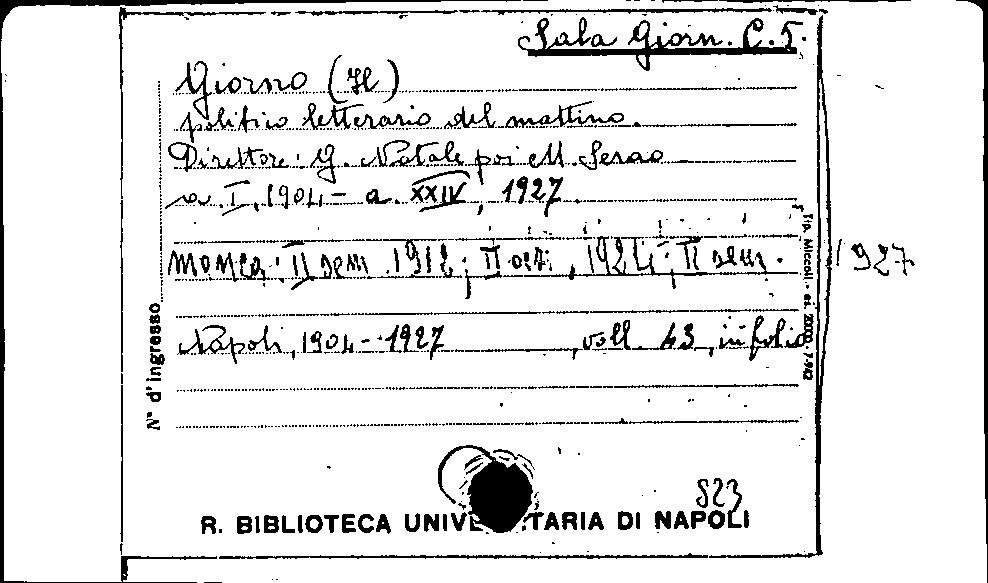 Sala Giorn. C.5.
Giorno (Il)
politico letterario del mattino.
Direttore: G. Natale poi M. Serao
a. I, 1904 - a. XXIV, 1927.
manca: II sem. 1912; II , 1924; II sem. 1927
Napoli, 1904 - 1927 , voll. 43, in folio
N° d'ingresso
Tip. Miccoli - es. 2000 - 7-942
823
R. BIBLIOTECA UNIVE TARIA DI NAPOLI